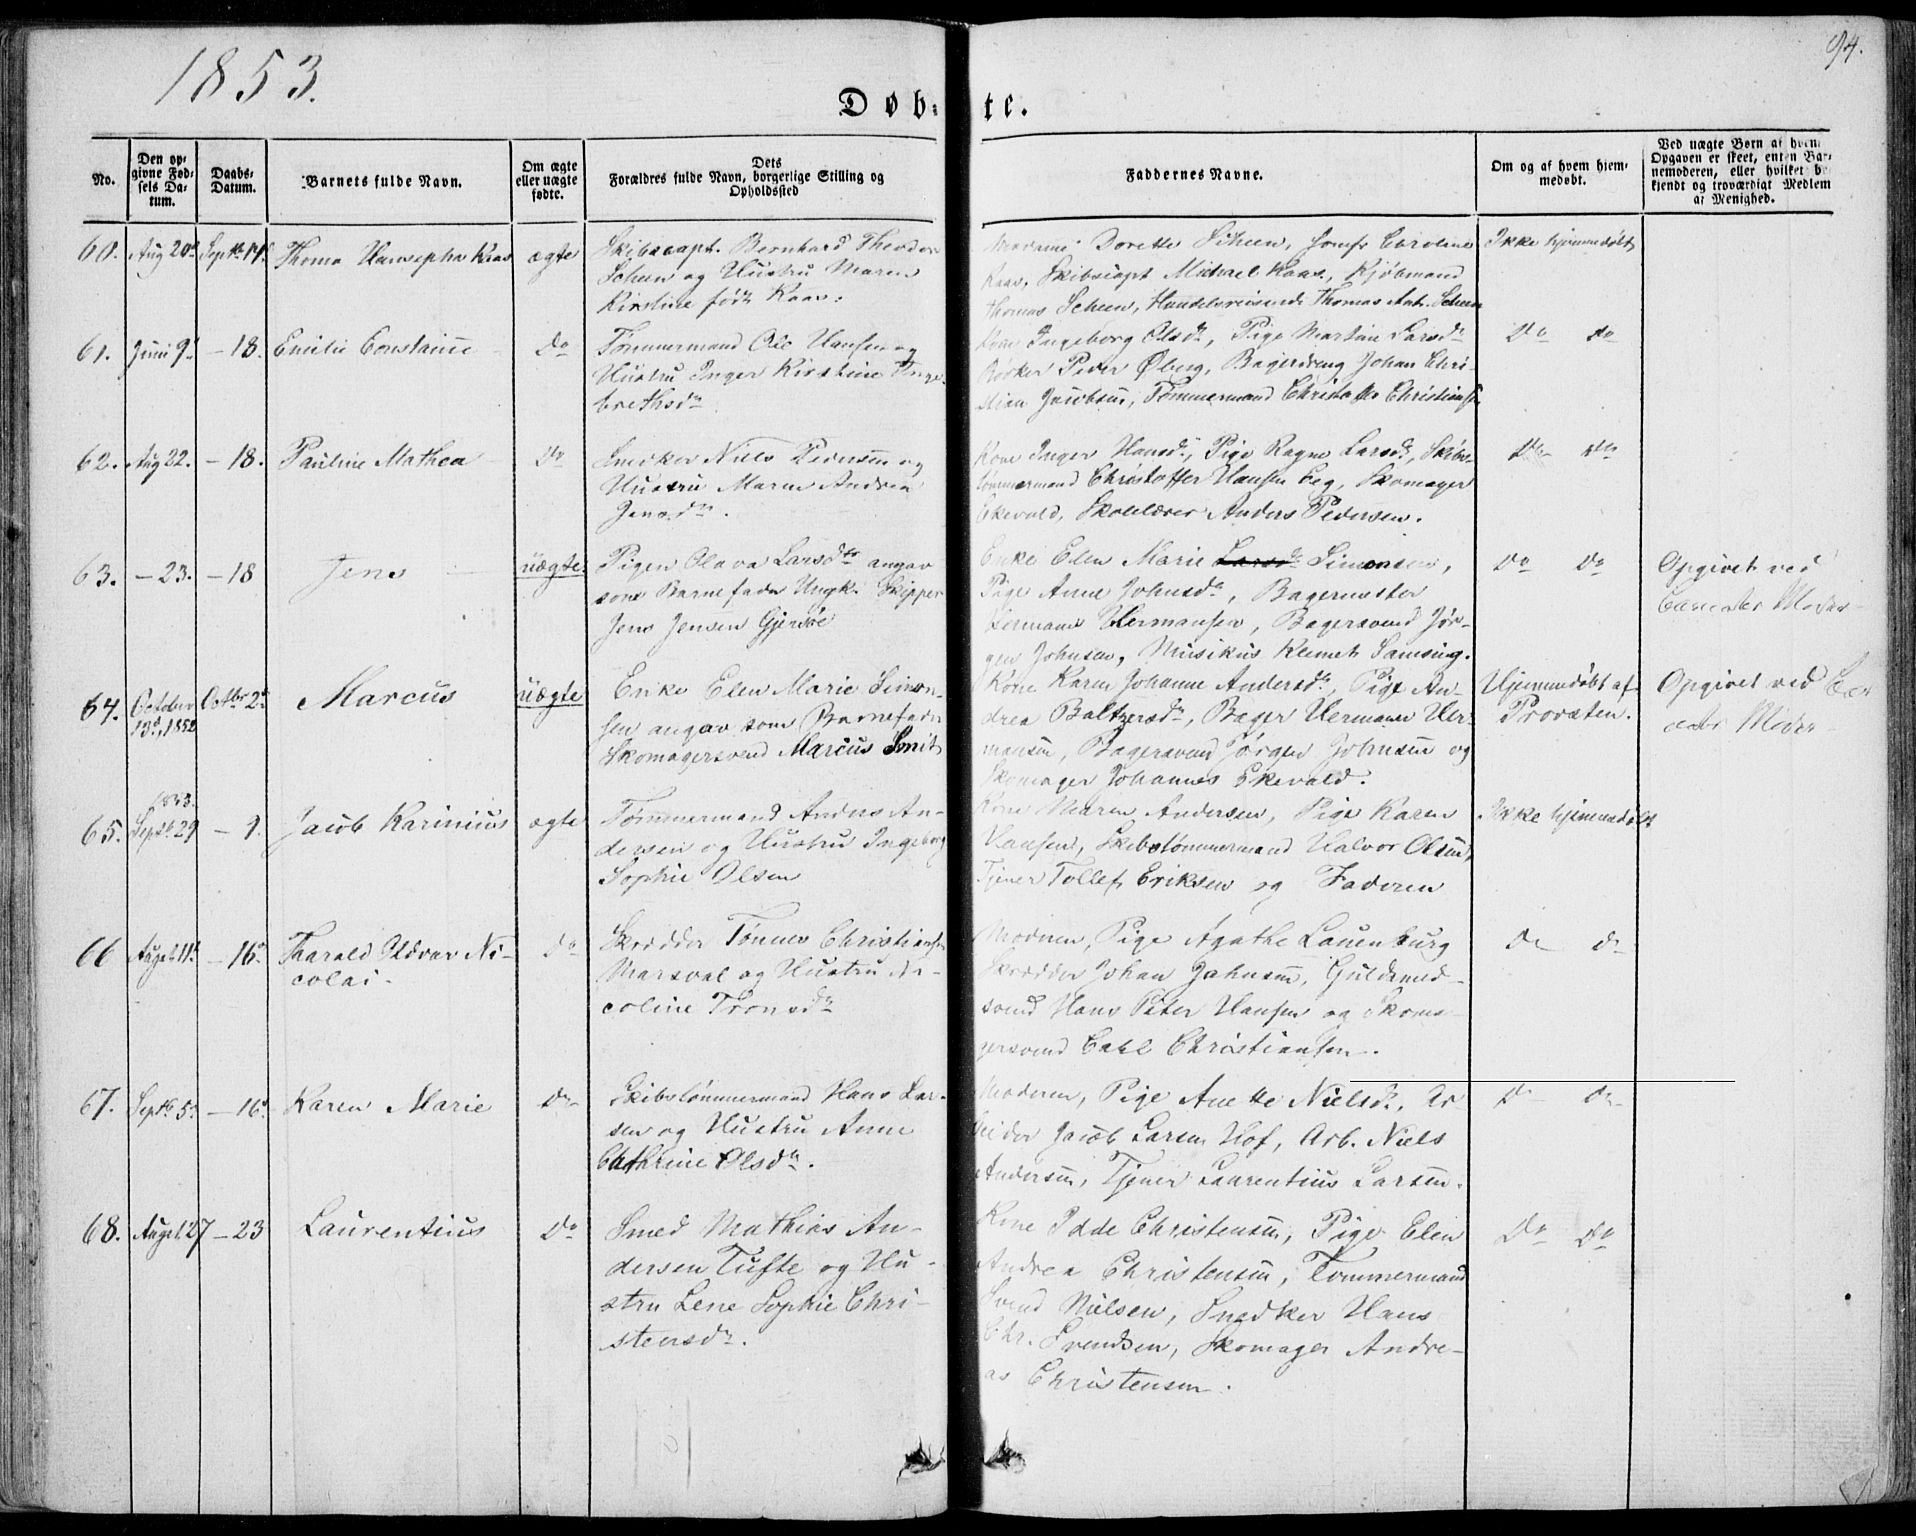 1853.
94.
Døb- te.
No.
Den op-
givne Fød-
sels Da-
tum.
Daabs-
Datum.
Barnets fulde Navn.
Om ægte
eller uægte
fødte.
Dets
Forældres fulde Navn, borgerlige Stilling og
Opholdssted
Faddernes Navne.
Om og af hvem hjem-
medøbt.
Ved uægte Børn af hvem
Opgaven er skeet, enten Bar-
nemoderen, eller hvilket be-
kjendt og troværdigt Medlem
af Menighed.
60. Aug 20d Septb 14d Thoma Hansepha Kras ægte
Skibscapt. Bernhard Theodor
Scheen og Hustru Maren
Kirstine født Kaas.
Madame Dorette Scheen, Jomfr Caroline
Kaas, Skibscapt Michael Kaas, Kjøbmand
Thomas Scheen, Handelsreisende Thomas Ant. Scheen
Ikke hjemmedøbt
61. Juni 9d - 18. Emilie Constance Do
Tømmermand Ole Hansen og
Hustru Inger Kirstine Inge-
brethsdr
Kone Ingeborg Olsdr, Pige Martine Larsdr
Bødker Peder Øberg, Bagerdreng Johan Chri-
stian Jacobsen, Tømmermand Christoffer Christians
Do Do
62. Aug 22. - 18. Pauline Mathea Do
Snedker Niels Pedersen og
Hustru Maren Andrea
Jensdr.
Kone Inger Hansdr, Pige Ragne Larsdr, Skibs-
tømmermand Christoffer Hansen Eeg, Skomager
Ekevald, Skolelærer Anders Pedersen.
Do Do
63. - 23. - 18 Jens uægte
Pigen Olava Larsdtr angav
som Barnefader Ungk. Skipper
Jens Jensen Gjersøe
Enke Elen Marie Larsdr Simonsen,
Pige Anne Johnsdr, Bagermester
Hermann Hermansen, Bagersvend Jør-
gen Johnsen, Musikus Klemet Samsing.
Do Do
Opgivet ved
Barnets Moder
64. October
13d, 1852 Octbr 2d Marcus uægte
Enke Elen Marie Simon-
sen angav som Barnefader
Skomagersvend Marcus Smit
Kone Karen Johanne Andersdr, Pige An-
drea Baltzersdr, Bager Hermann Her-
mansen, Bagersvend Jørgen Johnsen og
Skomager Johannes Ekevald.
Hjemmedøbt af
Provsten.
Opgivet ved Bar
nets Moder
65. 1853.
Septb 29 - 9. Jacob Karinius ægte
Tømmermand Anders An-
dersen og Hustru Ingeborg
Sophie Olsen
Kone Maren Andersen, Pige Karen
Hansen, Skibstømmermand Halvor Olsen,
Tjener Tollef Eriksen og Faderen
Ikke hjemmedøbt
66 Augst 11d - 16d Tharald Ni-
colai.
Do
Skrædder Tønnes Christiansen
Marsval og Hustru Ni-
coline Tronsdr
Moderen, Pige Agathe Lauenburg
Skrædder Johan Jahnsen, Guldsmed-
svend Hans Peter Hansen og Skoma-
gersvend Carl Christiansen.
Do Do
67. Septb 5d - 16d Karen Marie Do
Skibstømmermand Hans Lar-
sen og Hustru Anne
Cathrine Olsdr.
Moderen, Pige Anette Nielsdr, Ar
beider Jacob Larsen Hof, Arb. Niels
Andersen, Tjener Laurentius Larsen.
Do Do
68. Augst 27 - 23 Laurentius Do
Smed Mathias An-
dersen Tufte og Hu-
stru Lene Sophie Chri-
stensdr.
Kone Idde Christensen, Pige Elen
Andrea Christensen, Tømmermand
Svend Nielsen, Snedker Hans
Chr. Svendsen, Skomager Andre-
as Christensen.
Do Do